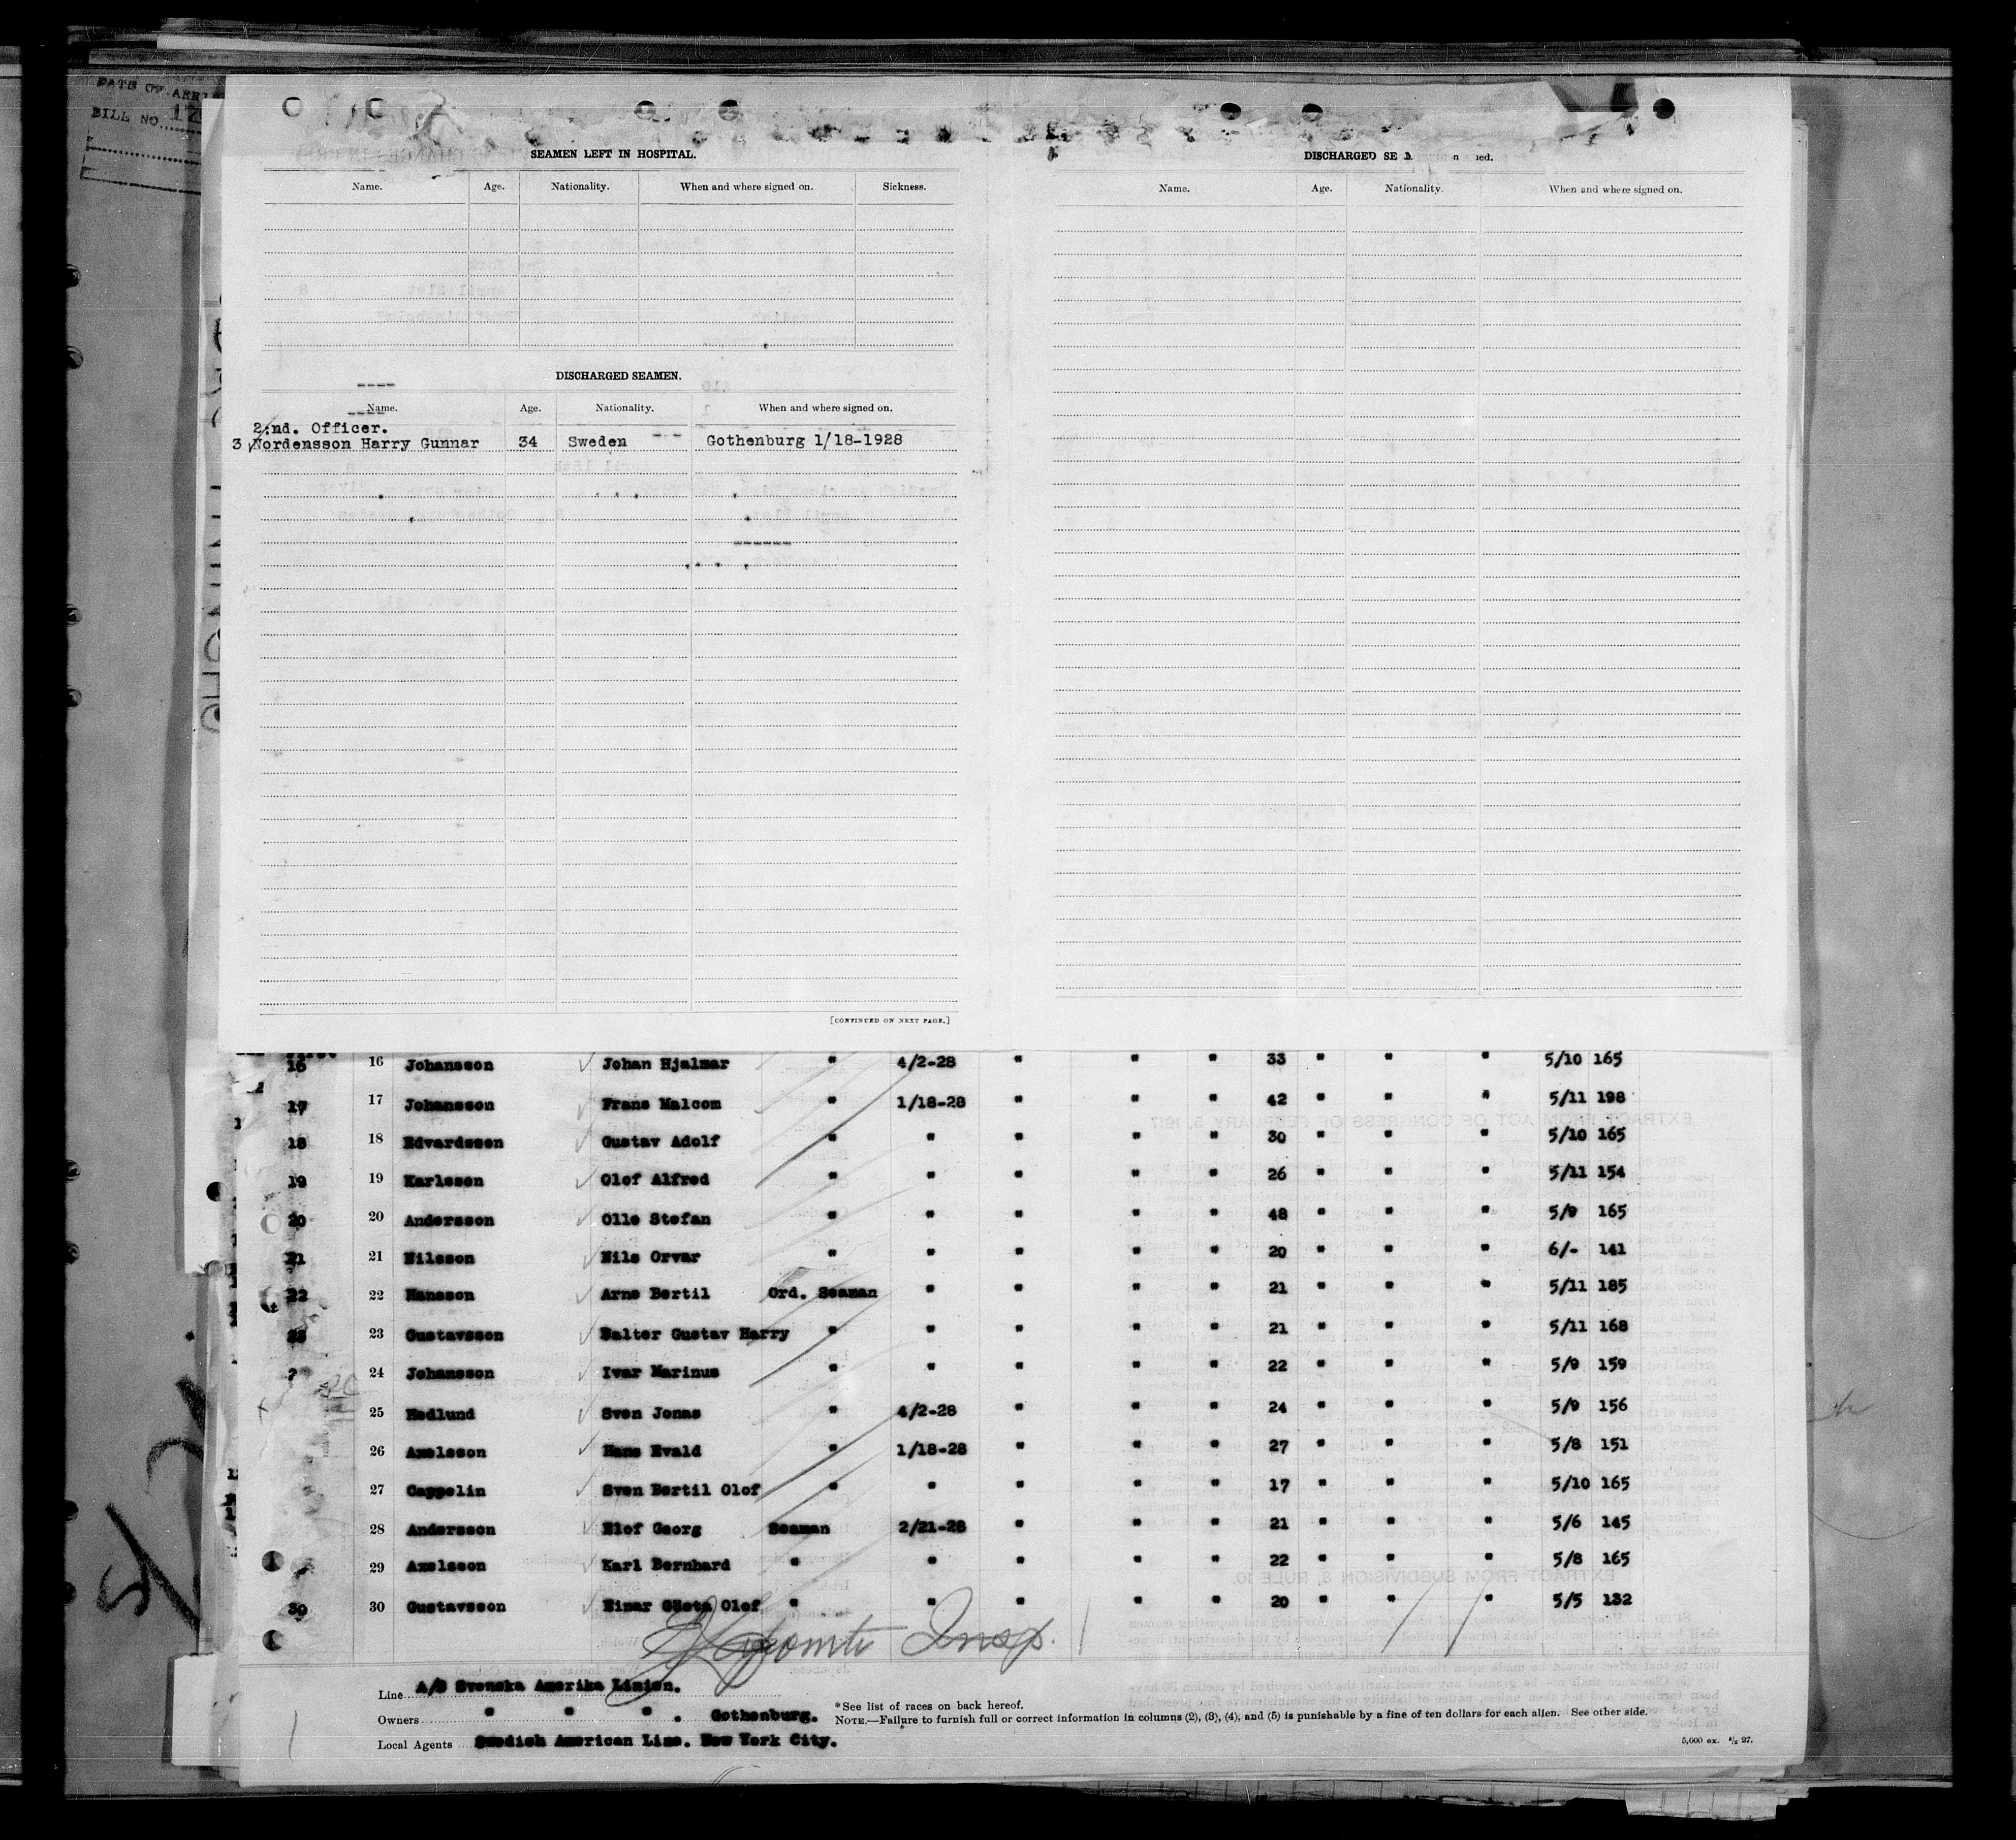 DATE OF ARRI
BILL NO. 12
SEAMEN LEFT IN HOSPITAL.
Name. Age. Nationality. When and where signed on. Sickness.
DISCHARGED SEAMEN.
Name. Age. Nationality. When and where signed on.
2:nd. Officer.
3 Nordensson Harry Gunnar 34 Sweden Gothenburg 1/18-1928
[CONTINUED ON NEXT PAGE.]
DISCHARGED SE
Name. Age. Nationality. When and where signed on.
16 16 Johansson Johan Hjalmar " 4/2-28 " " " 33 " " " 5/10 165
17 17 Johansson Frans Malcom " 1/18-28 " " " 42 " " " 5/11 198
18 18 Edvardsson Gustav Adolf " " " " " 30 " " " 5/10 165
19 19 Karlsson Olof Alfred " " " " " 26 " " " 5/11 154
20 20 Andersson Olle Stefan " " " " " 48 " " " 5/9 165
21 21 Nilsson Nils Orvar " " " " " 20 " " " 6/- 141
22 22 Hansson Arne Bertil Ord. Seaman " " " " 21 " " " 5/11 185
23 23 Gustavsson Walter Gustav Harry " " " " " 21 " " " 5/11 168
24 Johansson Ivar Marinus " " " " " 22 " " " 5/9 159
25 Hedlund Sven Jonas " 4/2-28 " " " 24 " " " 5/9 156
26 Axelsson Hans Evald " 1/18-28 " " " 27 " " " 5/8 151
27 Cappelin Sven Bertil Olof " " " " " 17 " " " 5/10 165
28 Andersson Elof Georg Seaman 2/21-28 " " " 21 " " " 5/6 145
29 Axelsson Karl Bernhard " " " " " 22 " " " 5/8 165
30 30 Gustavsson Einar Gösta Olof " " " " " 20 " " " 5/5 132
Insp.
Line A/B Svenska Amerika Linien.
Owners " " " . Gothenburg.
Local Agents Swedish American Line. New York City.
*See list of races on back hereof.
NOTE.—Failure to furnish full or correct information in columns (2), (3), (4), and (5) is punishable by a fine of ten dollars for each alien. See other side.
5,000 ex. 27.